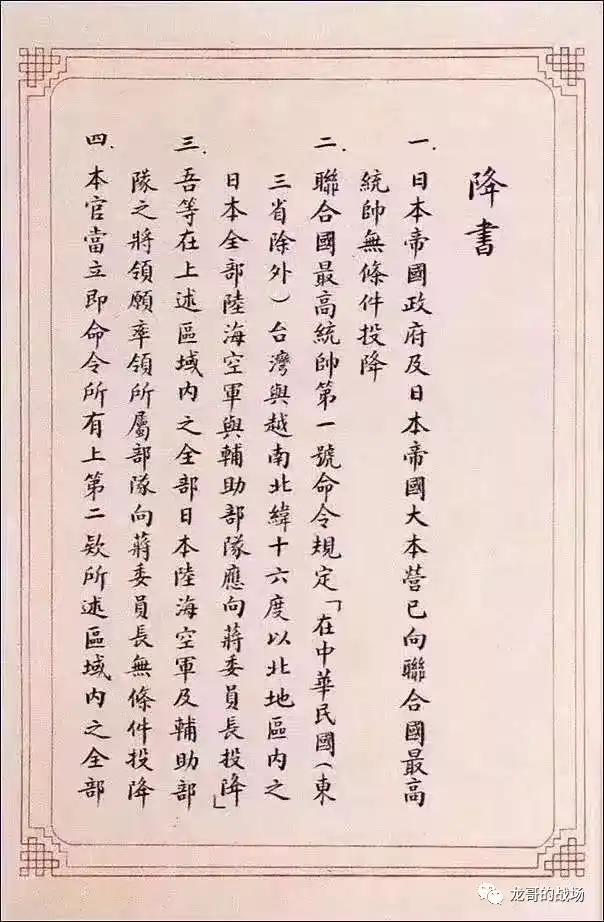 降書
一.日本帝國政府及日本帝國大本營已向聯合國最高
統帥無條件投降
二.聯合國最高統帥第一號命令規定「在中華民國(東
三省除外)台灣與越南北緯十六度以北地區內之
日本全部陸海空軍與輔助部隊應向蔣委員長投降」
三.吾等在上述區域內之全部日本陸海空軍及輔助部
隊之將領願率領所屬部隊向蔣委員長無條件投降
四.本官當立即命令所有上第二欵所述區域內之全部
龙哥的战场